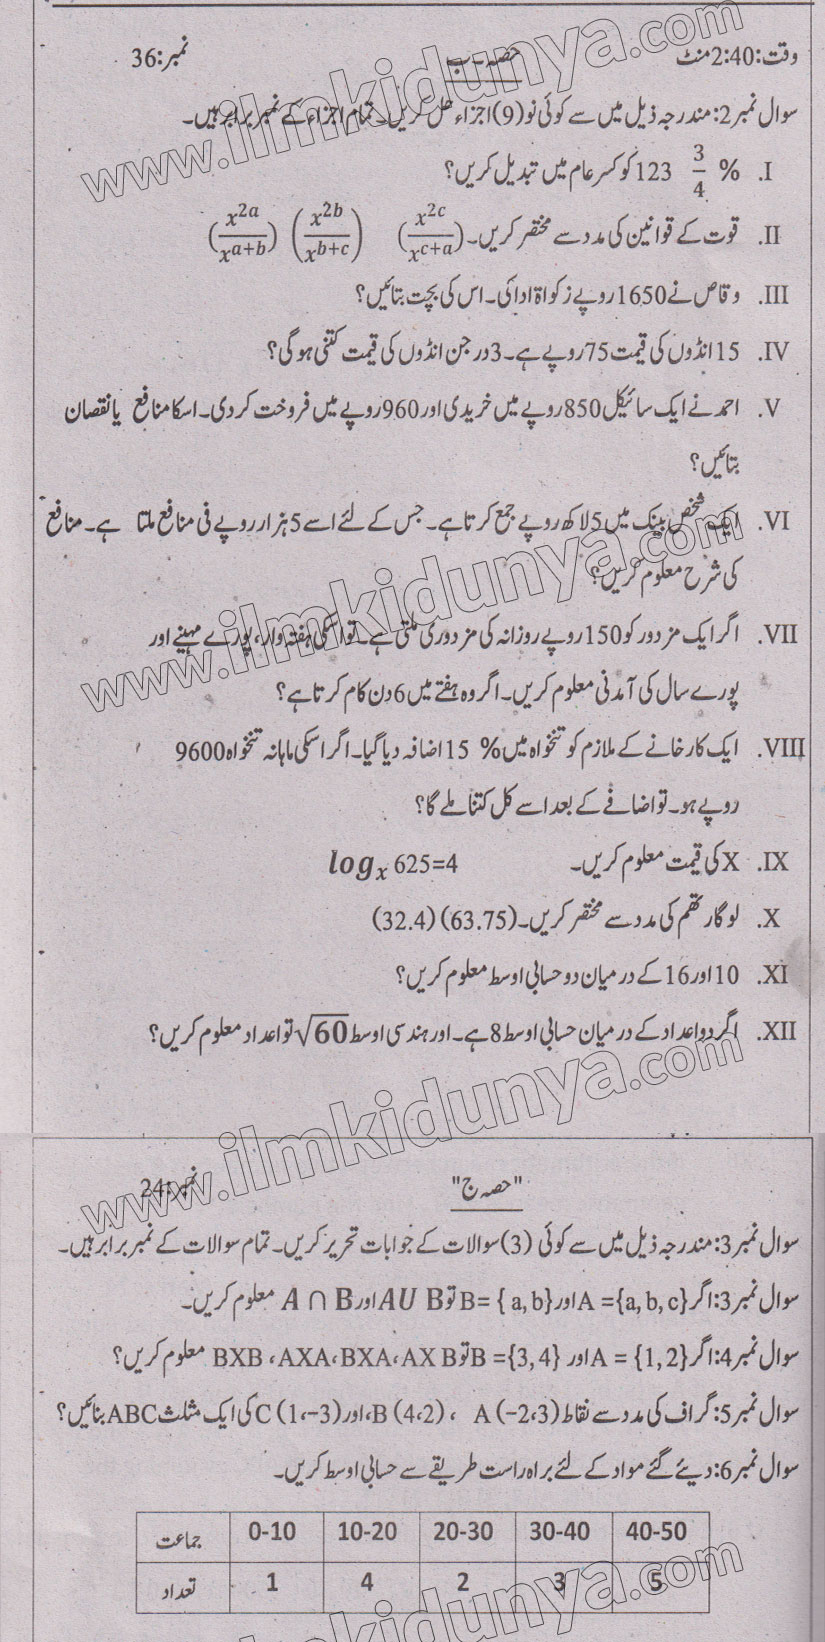 وقت:2:40 منٹ حصہ۔ب نمبر:36
سوال نمبر2: مندرجہ ذیل میں سے کوئی نو(9) اجزاء حل کریں۔ تمام اجزاء کے نمبر برابر ہیں۔
I. 123 3/4 % کو کسر عام میں تبدیل کریں؟
II. قوت کے قوانین کی مدد سے مختصر کریں۔ (x^2a/x^a+b) (x^2b/x^b+c) (x^2c/x^c+a)
III. وقاص نے 1650 روپے زکواۃ ادا کی۔ اس کی بچت بتائیں؟
IV. 15 انڈوں کی قیمت 75 روپے ہے۔ 3 درجن انڈوں کی قیمت کتنی ہوگی؟
V. احمد نے ایک سائیکل 850 روپے میں خریدی اور 960 روپے میں فروخت کر دی۔ اسکا منافع یا نقصان
بتائیں؟
VI. ایک شخص بینک میں 5 لاکھ روپے جمع کرتا ہے۔ جس کے لئے اسے 5 ہزار روپے فی منافع ملتا ہے۔ منافع
کی شرح معلوم کریں؟
VII. اگر ایک مزدور کو 150 روپے روزانہ کی مزدوری ملتی ہے۔ تو اسکی ہفتہ وار، پورے مہینے اور
پورے سال کی آمدنی معلوم کریں۔ اگر وہ ہفتے میں 6 دن کام کرتا ہے؟
VIII. ایک کارخانے کے ملازم کو تنخواہ میں % 15 اضافہ دیا گیا۔ اگر اسکی ماہانہ تنخواہ 9600
روپے ہو۔ تو اضافے کے بعد اسے کل کتنا ملے گا؟
IX. X کی قیمت معلوم کریں۔ log_x 625=4
X. لوگارتھم کی مدد سے مختصر کریں۔ (32.4) (63.75)
XI. 10 اور 16 کے درمیان دو حسابی اوسط معلوم کریں؟
XII. اگر دو اعداد کے درمیان حسابی اوسط 8 ہے۔ اور ہندسی اوسط √60 تو اعداد معلوم کریں؟
"حصہ ج" نمبر:24
سوال نمبر3: مندرجہ ذیل میں سے کوئی (3) سوالات کے جوابات تحریر کریں۔ تمام سوالات کے نمبر برابر ہیں۔
سوال نمبر3: اگر A ={a, b, c} اور B= { a, b} تو A U B اور A ∩ B معلوم کریں۔
سوال نمبر4: اگر A = {1, 2} اور B ={3, 4} تو AX B، BXA، AXA، BXB معلوم کریں؟
سوال نمبر5: گراف کی مدد سے نقاط A (-2،3) ، B (4،2)، اور C (1،-3) کی ایک مثلث ABC بنائیں؟
سوال نمبر6: دیئے گئے مواد کے لئے براہ راست طریقے سے حسابی اوسط کریں۔
جماعت 0-10 10-20 20-30 30-40 40-50
تعداد 1 4 2 3 5
www.ilmkidunya.com
www.ilmkidunya.com
www.ilmkidunya.com
www.ilmkidunya.com